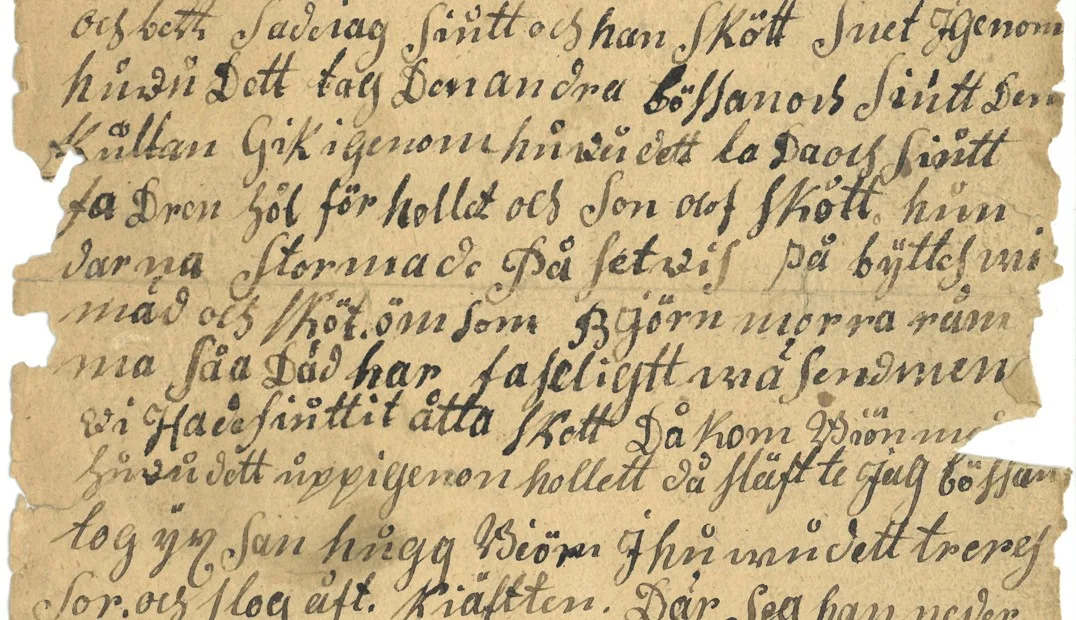 och bett Sade iag Siutt och han Skött Snet Jgenom
huvudett tog Den andra bössan och Siutt Den
Kullan Gik igenom huvudett la Da och Siutt
fadren höl för hollet och Son das Skött. hun
darna Stormade På setvis på byttes wi
mäd och Sköt. öm som Björn morra räm
ma såa Däd har faseligtt wäsend men
wi Hade siuttit åtta Skott Då kom Biörn me
huvudett uppigenon hollett då släfte Jag bössan
tog yx San hugg Biörn J huwudett treres
Sor. och slog åft. Kiäftten. Där seg han neder